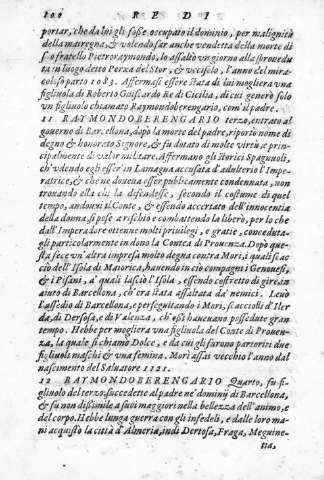 100 REDI
portar, che da lui gli fosse occupato il dominio, per malignità
della matregna, & volendo far anche vendetta della morte di
suo fratello Pietroraymondo, lo assaltò un giorno alla sproveduta
in luogo detto Perxa del Stor, & uccisélo, l'anno del miracoloso
parto 1083. Affermasi essere stata di lui mogliera una
figliuola di Roberto Guiscardo Re di Cicilia, di cui generò solo
un figliuolo chiamato Raymondoberengario, com'il padre.
11 RAYMONDOBERENGARIO terzo, entrato al
governo di Barcellona, dopo la morte del padre, riportò nome di
degno & honorato Signore, & fu dotato di molte virtù, e principalmente
di valor militare. Affermano gli storici Spagnuoli,
ch'udendo egli esser in Lamagna accusata d'adulterio l'Imperatrice,
& che ne doveva esser publicamente condennata, non
trovando ella chi la difendesse, secondo il costume di quel
tempo, andovvi il Conte, & essendo accertato dell'innocentia
della donna si pose a rischio e combattendo la liberò, per lo che
dall'Imperadore ottenne molti privilegi, e gratie, concedutagli
particolarmente in dono la Contea di Provenza. Dopo questa
fece un'altra impresa molto degna contra Mori, i quali scacciò
dell'Isola di Maiorica, havendo in ciò compagni i Genovesi,
& i Pisani, a' quali lasciò l'Isola, essendo costretto di gire in
aiuto di Barcellona, ch'era stata assaltata da' nemici. Levò
l'assedio di Barcellona, e perseguitando i Mori, li accolse d'Ilerda,
di Dersosa, e di Valenza, ch'essi havevano possedute gran
tempo. Hebbe per mogliera una figliuola del Conte di Provenza,
la quale si chiamò Dolce, e da cui gli furono partoriti due
figliuoli maschi & una femina. Morì assai vecchio l'anno dal
nascimento del Salvatore 1131.
12 RAYMONDOBERENGARIO Quarto, fu figliuolo
del terzo, succedette al padre ne' dominij di Barcellona,
& fu non dissimile a suoi maggiori nella bellezza dell'animo, e
del corpo. Hebbe lunga guerra con gli infedeli, e dalle loro mani
acquistò la città d'Almeria, indi Dertosa, Fraga, Meguinetia,